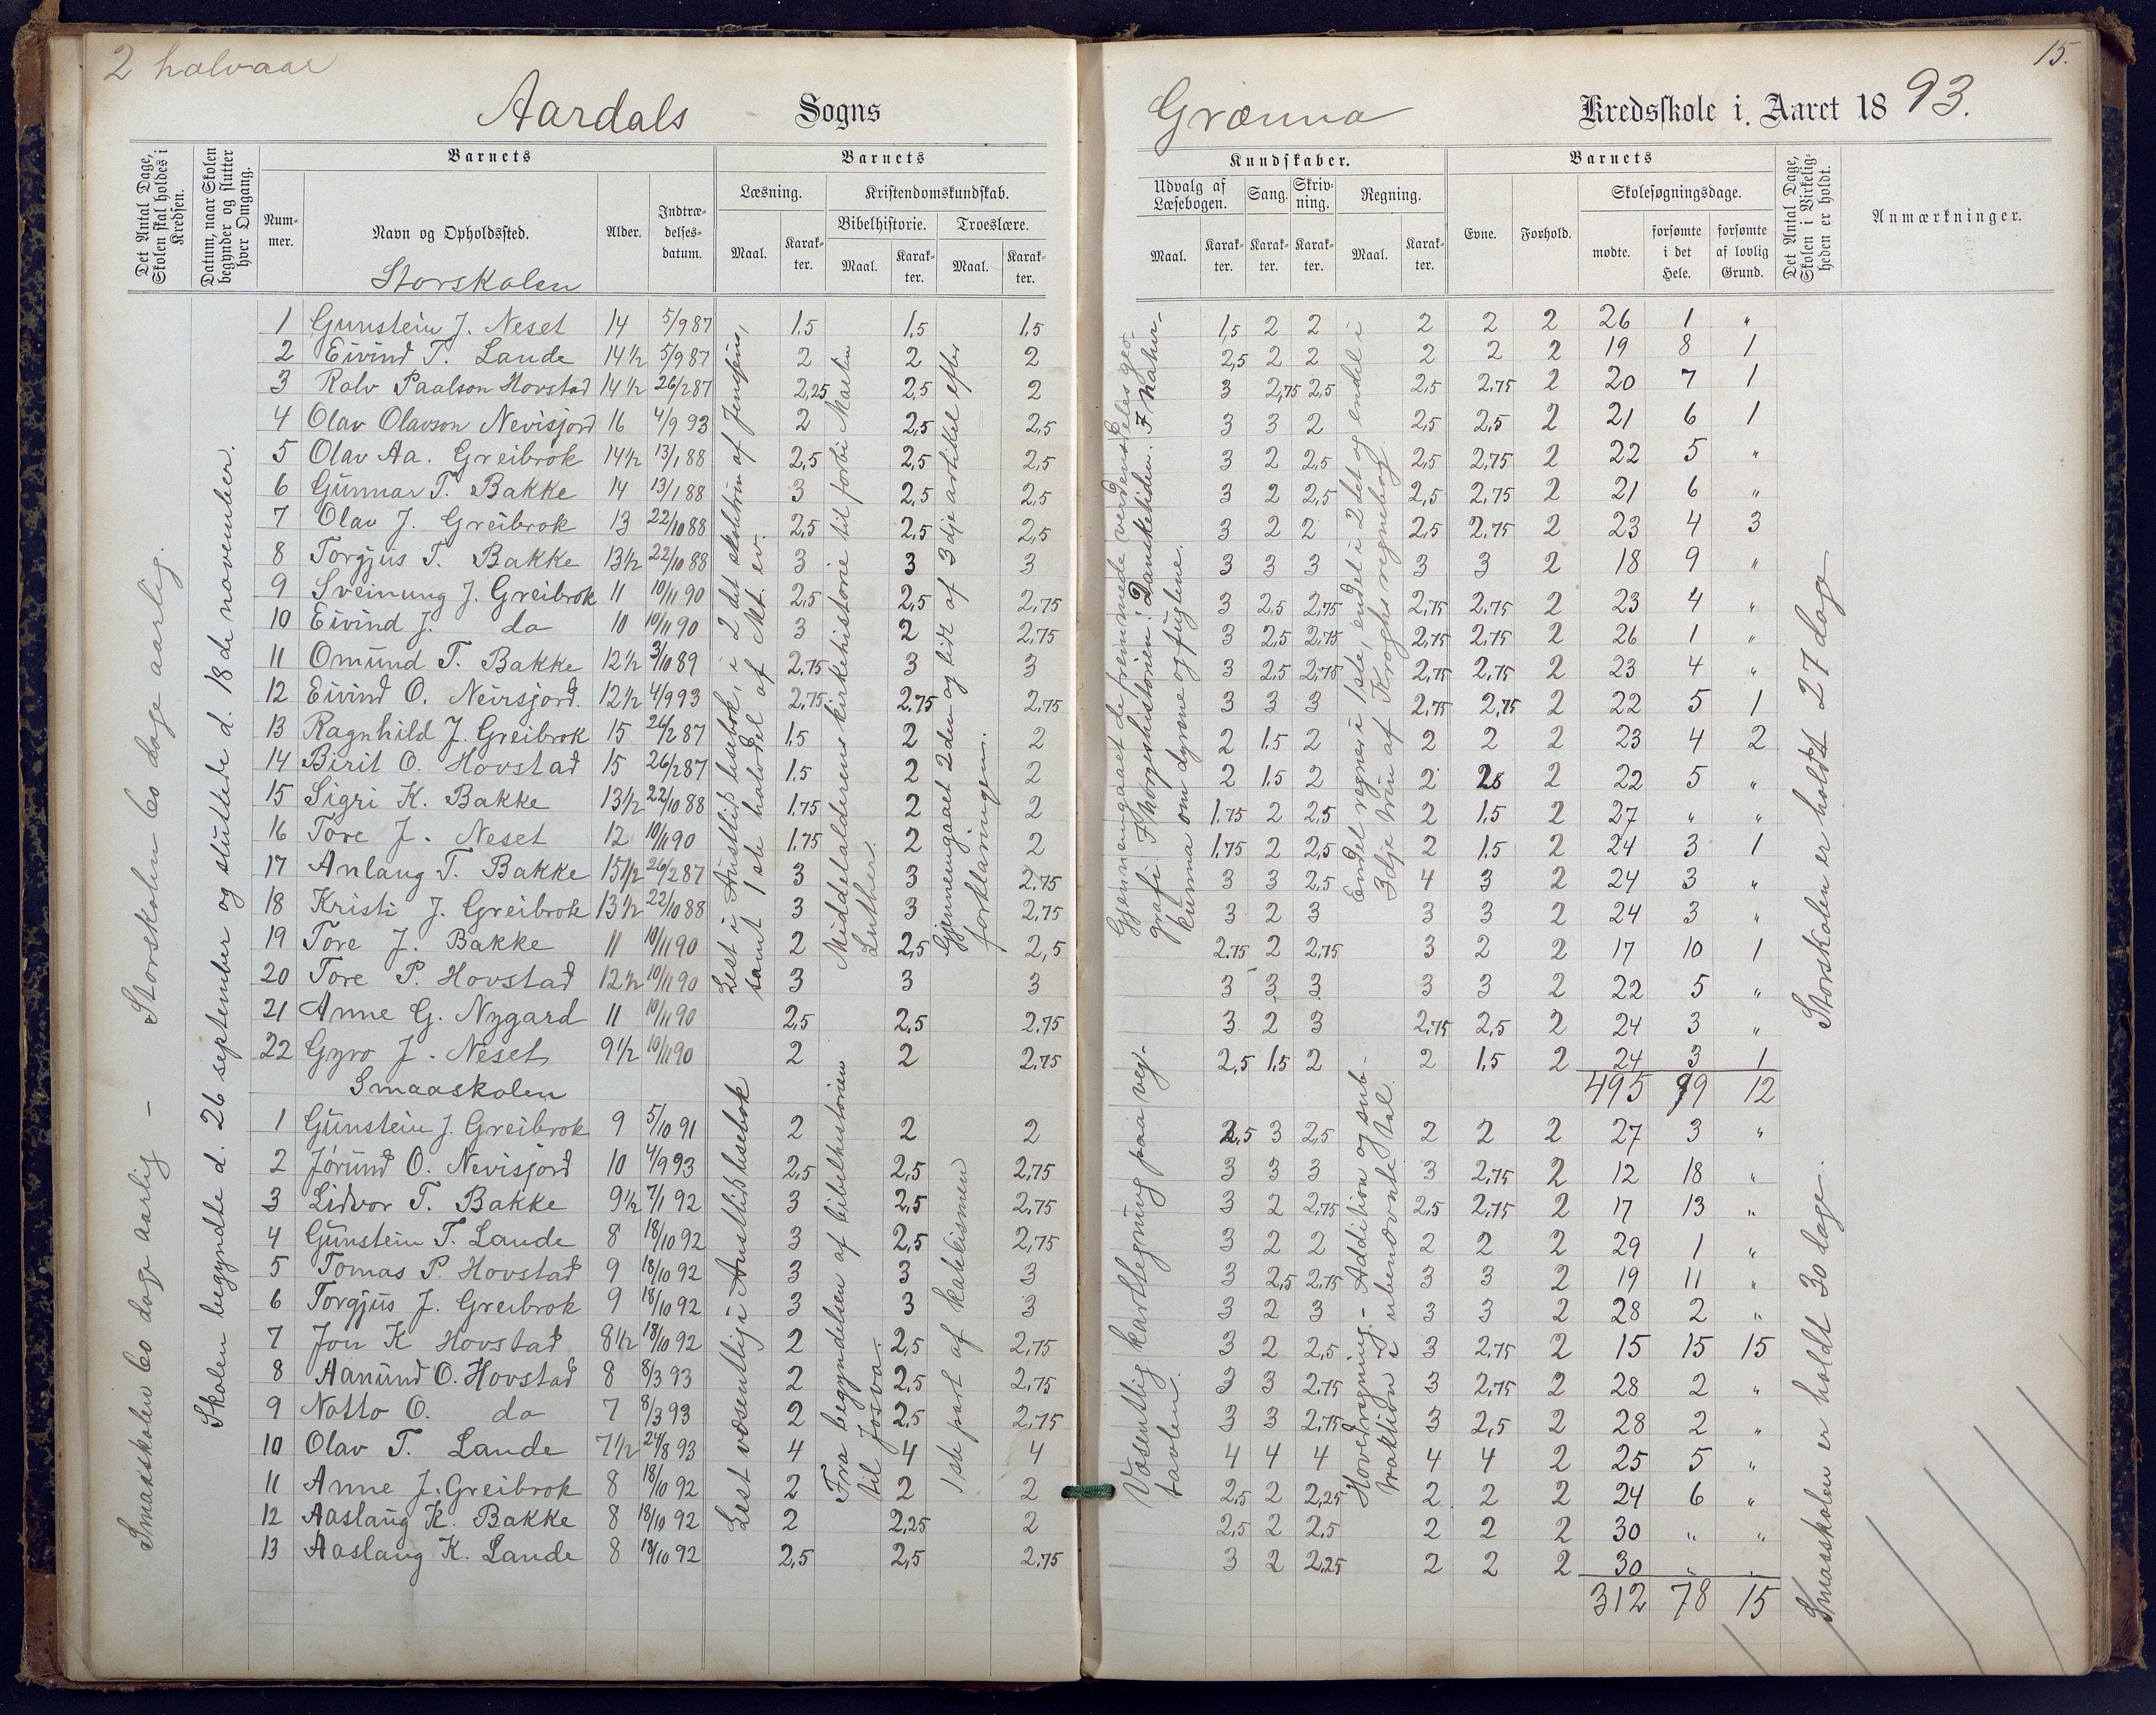 2 halvaar
Aardals Sogns
Det Antal Dage, Skolen skal holdes i Kredsen.
Datum, naar Skolen begynder og slutter hver Omgang.
Barnets
Barnets
Nummer.
Navn og Opholdssted.
Alder.
Indtrædelsesdatum.
Læsning.
Kristendomskundskab.
Bibelhistorie.
Troeslære.
Maal.
Karakter.
Maal.
Karakter.
Maal.
Karakter.
Storskolen
1 Gunstein J. Neset 14 5/9 87 1,5 1,5 1,5
2 Eivind T. Lande 14 1/2 5/9 87 2 2 2
3 Ralv Paalson Hovstad 14 1/2 26/2 87 2,25 2,5 2
4 Olav Olavson Nevisjord 16 4/9 93 2 2,5 2,5
5 Olav Aa. Greibrok 14 1/2 13/1 88 2,5 2,5 2,5
6 Gunnar T. Bakke 14 13/1 88 3 2,5 2,5
7 Olav J. Greibrok 13 22/10 88 2,5 2,5 2,5
8 Torgjus T. Bakke 13 1/2 22/10 88 3 3 3
9 Sveinung J. Greibrok 11 10/11 90 2,5 2,5 2,75
10 Eivind J. do 10 10/11 90 3 2 2,75
11 Omund T. Bakke 12 1/2 3/10 89 2,75 3 3
12 Eivind O. Neirsjord. 12 1/2 4/9 93 2,75 2,75 2,75
13 Ragnhild J. Greibrok 15 26/2 87 1,5 2 2
14 Birit O. Hovstad 15 26/2 87 1,5 2 2
15 Sigri K. Bakke 13 1/2 22/10 88 1,75 2 2
16 Tore J. Neset 12 10/11 90 1,75 2 2
17 Anlaug T. Bakke 15 1/2 26/2 87 3 3 2,75
18 Kristi J. Greibrok 13 1/2 22/10 88 3 3 2,75
19 Tore J. Bakke 11 10/11 90 2 2,5 2,5
20 Tore P. Hovstad 12 1/2 10/11 90 3 3 3
21 Anne G. Nygard 11 10/11 90 2,5 2,5 2,75
22 Gyro J. Neset 9 1/2 10/11 90 2 2 2,75
Smaaskolen
1 Gunstein J. Greibrok 9 5/10 91 2 2 2
2 Jørund O. Nevisjord 10 4/9 93 2,5 2,5 2,75
3 Lidvor T. Bakke 9 1/2 7/1 92 3 2,5 2,75
4 Gunstein T. Lande 8 18/10 92 3 2,5 2,75
5 Tomas P. Hovstad 9 18/10 92 3 3 3
6 Torgjus J. Greibrok 9 18/10 92 3 3 3
7 Jon K Hovstad 8 1/2 18/10 92 2 2,5 2,75
8 Aanund O. Hovstad 8 8/3 93 2 2,5 2,75
9 Notto O. do 7 8/3 93 2 2,5 2,75
10 Olav T. Lande 7 1/2 24/8 93 4 4 4
11 Anne J. Greibrok 8 18/10 92 2 2 2
12 Aaslaug K. Bakke 8 18/10 92 2 2,25 2
13 Aaslaug K. Lande 8 18/10 92 2,5 2,5 2,75
Smaaskolen 60 dage aarlig - Storskolen 60 dage aarlig.
Skolen begyndte d. 26 september og sluttede d. 18de november.
Lest i Austlids lesebok, i 2det skoletrin af Jensens,
samt 1ste halvdel af Mt. ev.
Middelalderens kirkehistorie til forbi Martin
Luther.
Gjennemgaaet 2den og litt af 3dje artikel efter
forklaringen.
Lest væsentlig i Austlids lesebok
Fra begyndelsen af bibelhistorien
til Josva.
1ste part af katekismen
15.
Grænna Kredsskole i Aaret 1893.
Kundskaber.
Barnets
Udvalg af Læsebogen.
Sang.
Skrivning.
Regning.
Evne.
Forhold.
Skolesøgningsdage.
Det Antal Dage, Skolen i Virkeligheden er holdt.
Anmærkninger.
Maal.
Karakter.
Karakter.
Karakter.
Maal.
Karakter.
mødte.
forsømte i det Hele.
forsømte af lovlig Grund.
1,5 2 2 2 2 2 26 1 "
2,5 2 2 2 2 2 19 8 1
3 2,75 2,5 2,5 2,75 2 20 7 1
3 3 2 2,5 2,5 2 21 6 1
3 2 2,5 2,5 2,75 2 22 5 "
3 2 2,5 2,5 2,75 2 21 6 "
3 2 2 2,5 2,75 2 23 4 3
3 3 3 3 3 2 18 9 "
3 2,5 2,75 2,75 2,75 2 23 4 "
3 2,5 2,75 2,75 2,75 2 26 1 "
3 2,5 2,75 2,75 2,75 2 23 4 "
3 3 3 2,75 2,75 2 22 5 1
2 1,5 2 2 2 2 23 4 2
2 1,5 2 2 2 22 5 "
1,75 2 2,5 2 1,5 2 27 " "
1,75 2 2,5 2 1,5 2 24 3 1
3 3 2,5 4 3 2 24 3 "
3 2 3 3 3 2 24 3 "
2,75 2 2,75 3 2 2 17 10 1
3 3 3 3 3 2 22 5 "
3 2 3 2,75 2,5 2 24 3 "
2,5 1,5 2 2 1,5 2 24 3 1
495 99 12
2,5 3 2,5 2 2 2 27 3 "
3 3 3 3 2,75 2 12 18 "
3 2 2,75 2,5 2,75 2 17 13 "
3 2 2 2 2 2 29 1 "
3 2,5 2,75 3 3 2 19 11 "
3 2 3 3 3 2 28 2 "
3 2 2,5 3 2,75 2 15 15 15
3 3 2,75 3 2,75 2 28 2 "
3 3 2,75 3 2,5 2 28 2 "
4 4 4 4 4 2 25 5 "
2,5 2 2,25 2 2 2 24 6 "
2,5 2 2,5 2 2 2 30 " "
3 2 2,25 2 2 2 30 " "
312 78 15
Gjennemgaaet de fremmede verdensdeles geo-
grafi. I Norgeshistorien: Dansketiden. I natur-
kunna om dyrene og fuglene.
Endel regner i 1ste, endel i 2det og endel i
3dje trin af Kroghs regnebog.
Væsentlig kartlegning paa veg-
tavlen.
Hovedregning. - Addition og sub-
traktion i ubenævnte tal.
Storskolen er holdt 27 dage
Smaaskolen er holdt 30 dage.